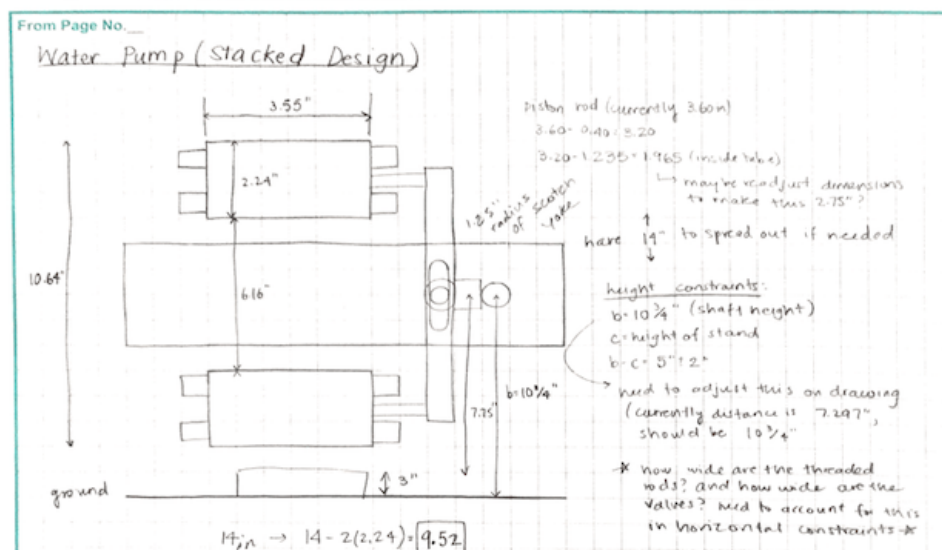 From Page No.
Water Pump (Stacked Design)
3.55"
2.24"
10.64"
6.16"
1.25"
radius
of scotch
yoke
Piston rod (currently 3.60in)
3.60 - 0.40 = 3.20
3.20 - 1.235 = 1.965 (inside tube)
↳ maybe readjust dimensions
to make this 2.75"?
have 14" to spread out if needed
height constraints:
b = 10 3/4" (shaft height)
c = height of stand
b - c = 5" ± 2"
need to adjust this on drawing
(currently distance is 7.297",
should be 10 3/4"
7.75"
b = 10 3/4"
ground
3"
* how wide are the threaded
rods? and how wide are the
valves? need to account for this
in horizontal constraints *
14in → 14 - 2(2.24) = 9.52